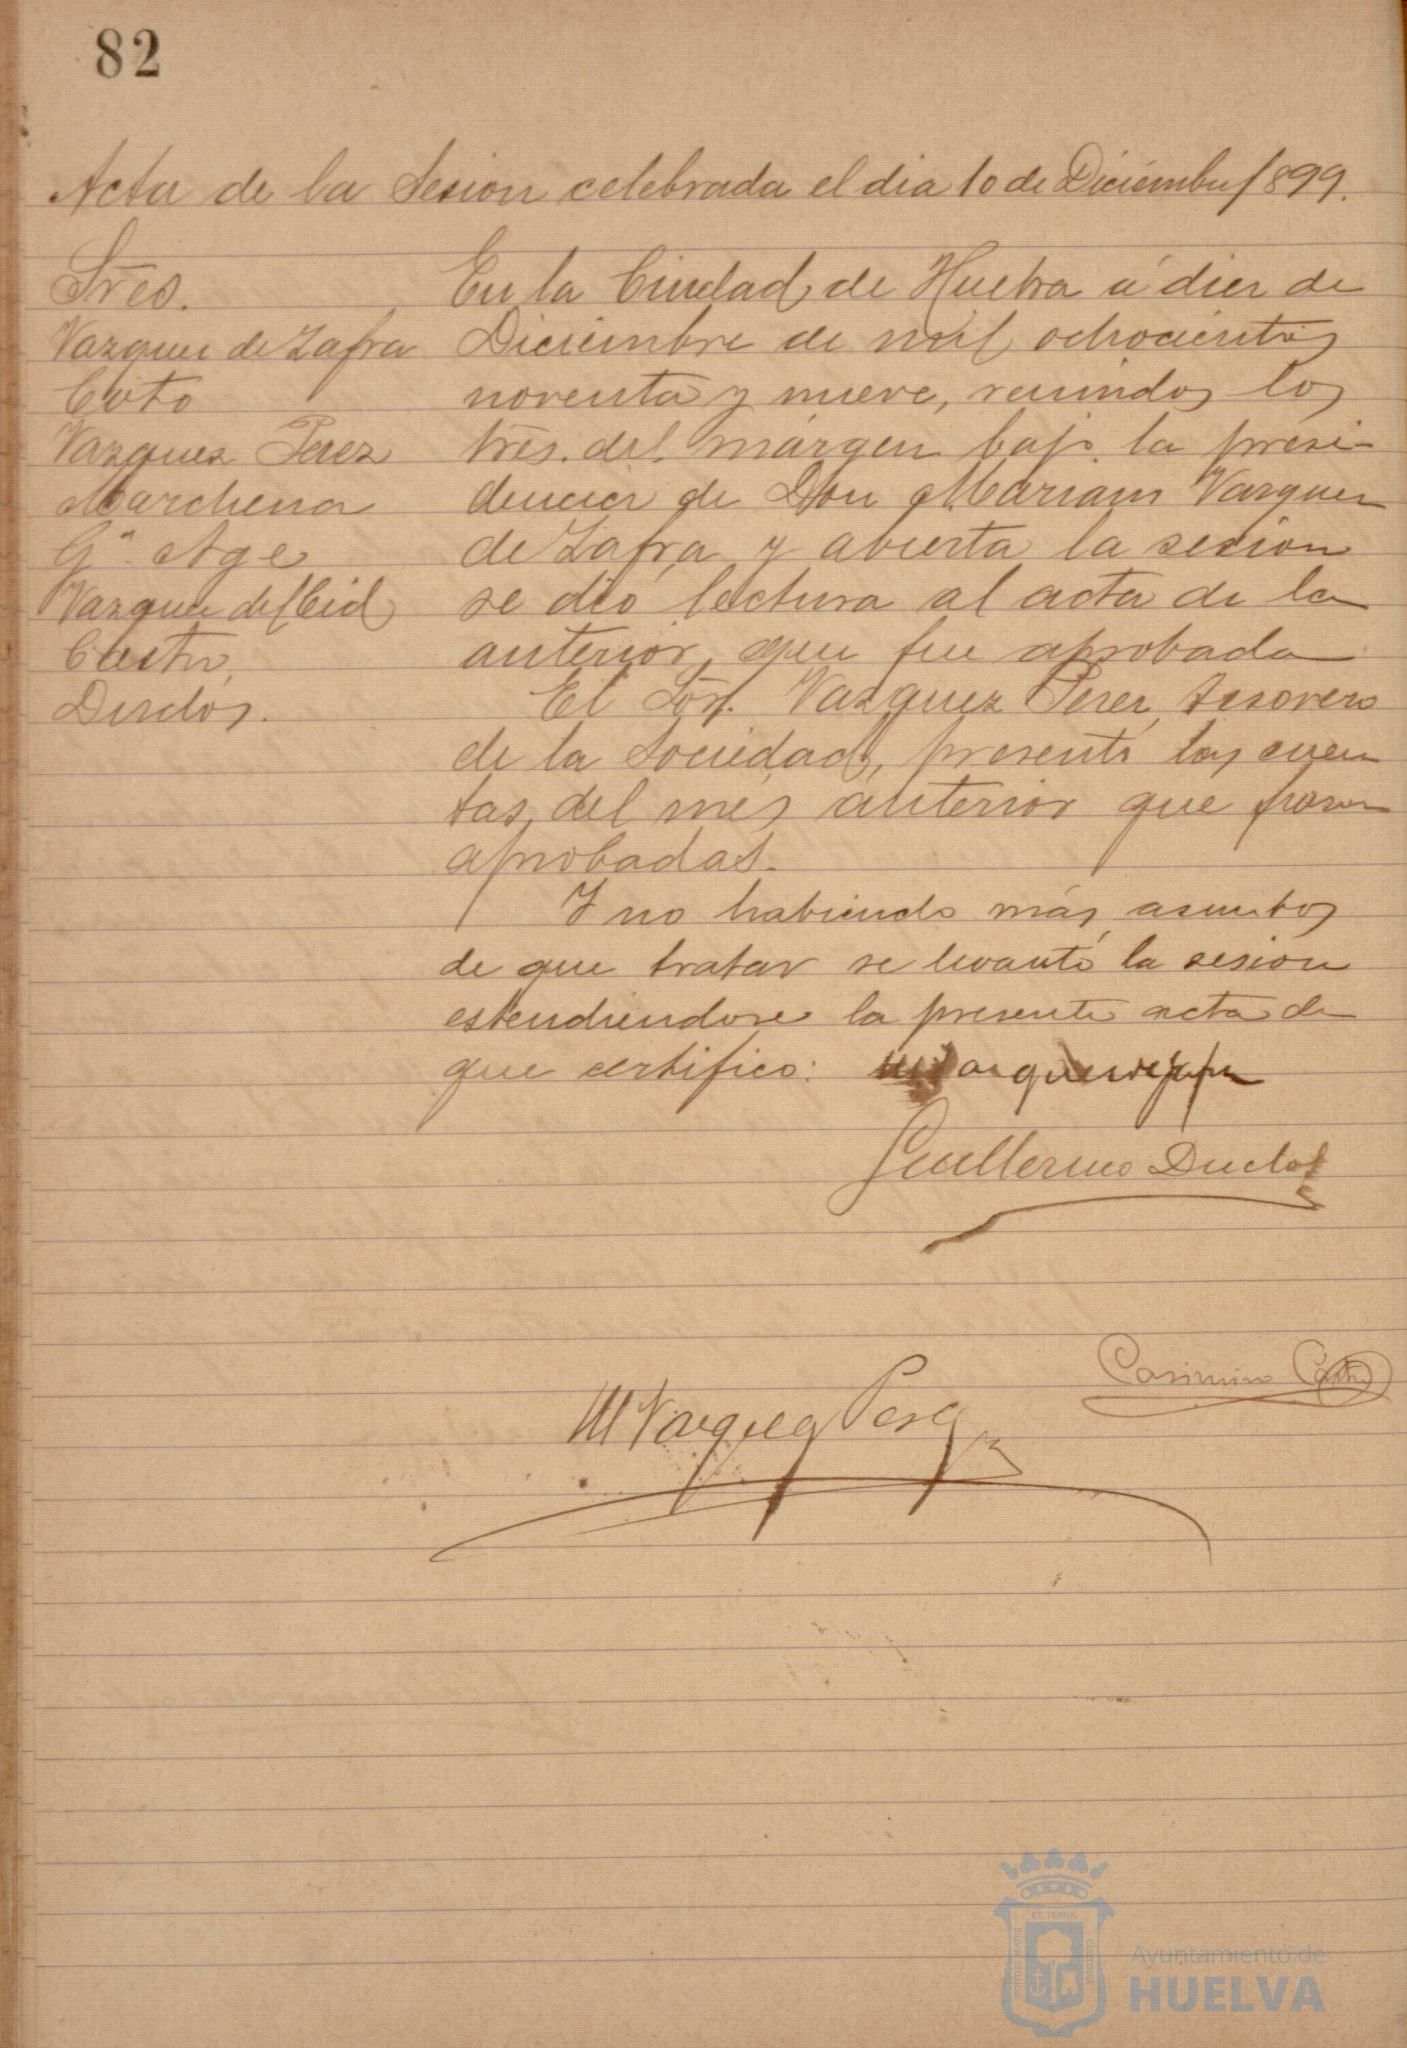 82
Acta de la Sesion celebrada el dia 10 de Diciembre 1899.
Sres.
Vazquez de Zafra
Coto
Vazquez Perez
Marchena
Gª Age
Vazquez del Cid
Castro
Duclós.
En la Ciudad de Huelva á diez de
Diciembre de mil ochocientos
noventa y nueve, reunidos los
Sres. del márgen bajo la presi-
dencia de Don Mariano Vazquez
de Zafra y abierta la sesion
se dió lectura al acta de la
anterior, que fue aprobada
El Sór. Vazquez Perez, tesorero
de la Sociedad, presentó las cuen
tas del mes anterior que fueron
aprobadas.
Y no habiendo más asuntos
de que tratar se levantó la sesion
estendiendose la presente acta de
que certifico: M Vazquez de Zafra
Guillermo Duclós
Casimiro Castro
M Vazquez Perez
Ayuntamiento de
HUELVA